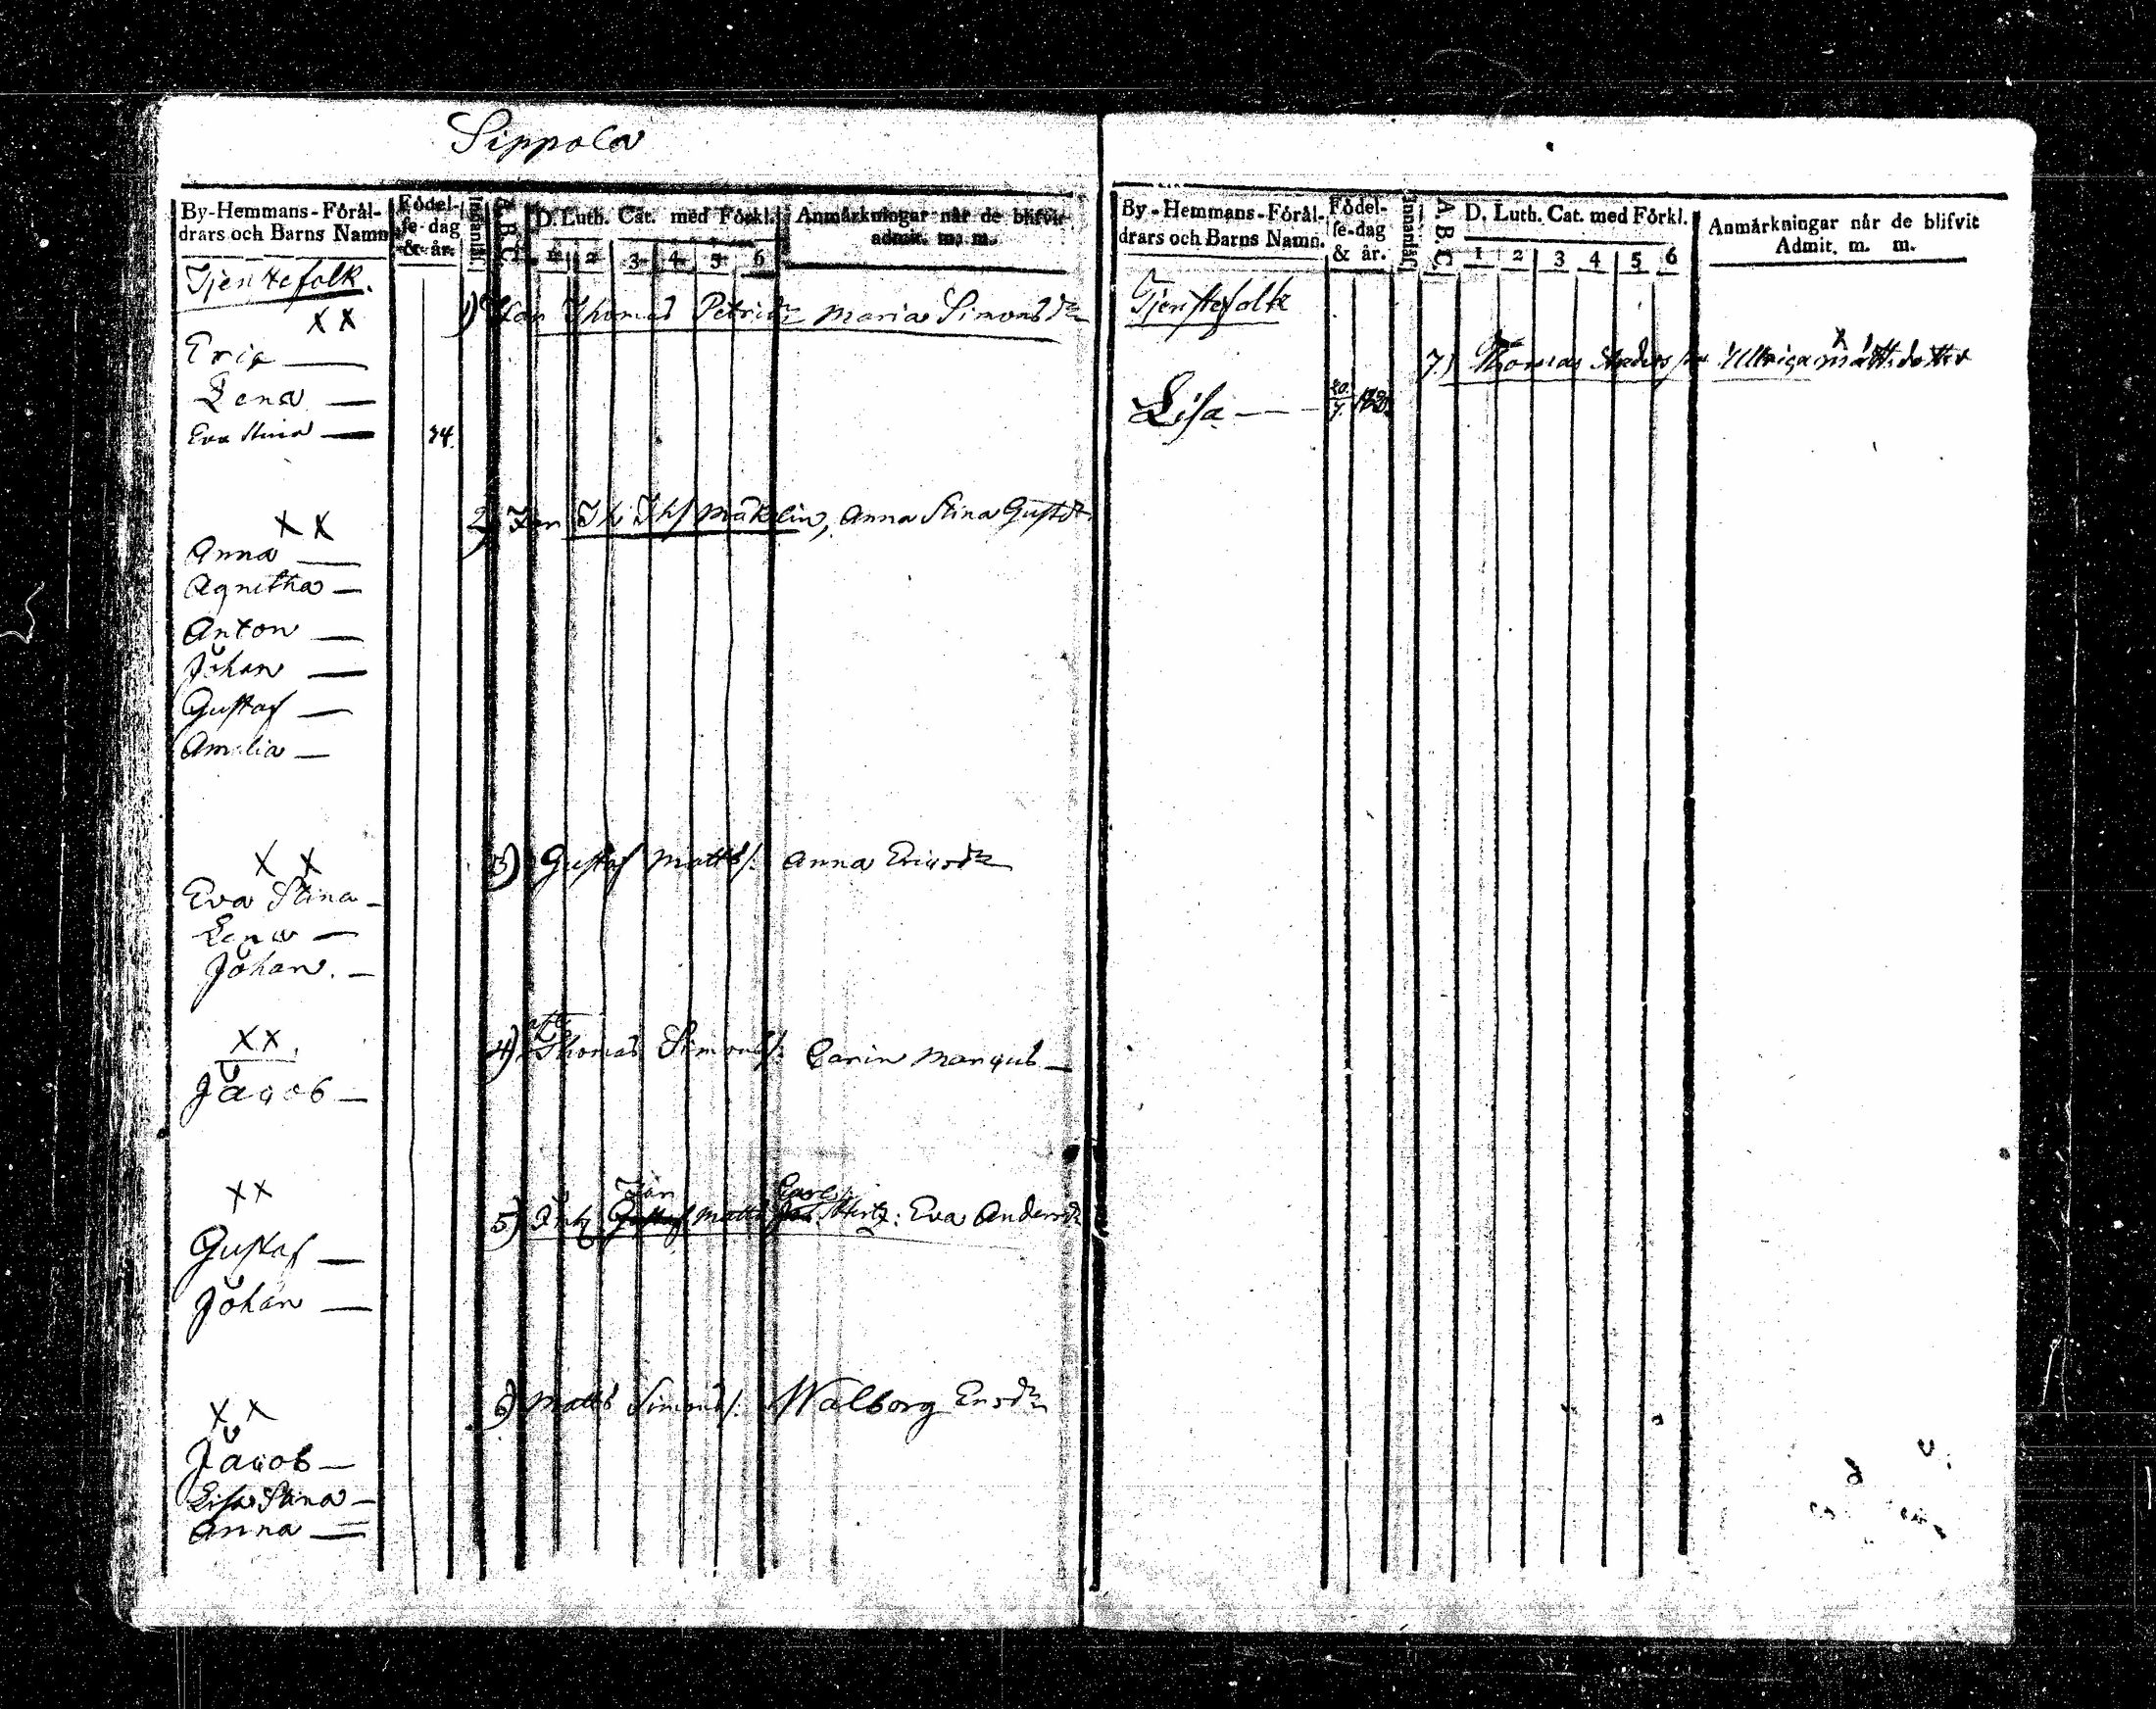 Sippola
By-Hemmans-Förål-
drars och Barns Namn
Födel-
se-dag
& år.
Innanläs.
A. B. C.
D. Luth. Cat. med Förkl.
1 2 3 4 5 6
Anmärkningar når de blifvit
admit. m. m.
Tjenstefolk.
1) Thomas Petri Maria Simonsdr
XX
Eric —
Lena —
Eva Stina — 34.
2) Mäklin, Anna Stina Gust.dr
XX
Anna —
Agnetha —
Anton —
Johan —
Gustaf —
Amalia —
3) Gustaf Matts/. Anna Ericsdr
XX
Eva Stina —
Lena —
Johan. —
4) Thomas Simons/. Carin Marqus —
XX.
Jacob —
5) Enk. Jan Gustaf Matts Carl Eva Andersdr
XX
Gustaf —
Johan —
6) Matts Simons/. Walborg Ersdr
XX
Jacob —
Lisa Stina —
Anna —
By-Hemmans-Förål-
drars och Barns Namn.
Födel-
se-dag
& år.
Innanläs.
A. B. C.
D. Luth. Cat. med Förkl.
1 2 3 4 5 6
Anmärkningar når de blifvit
Admit. m. m.
Tjenstefolk
7.) Thomas Anders Ulrica Mattsdotter
Lisa — 20/7.